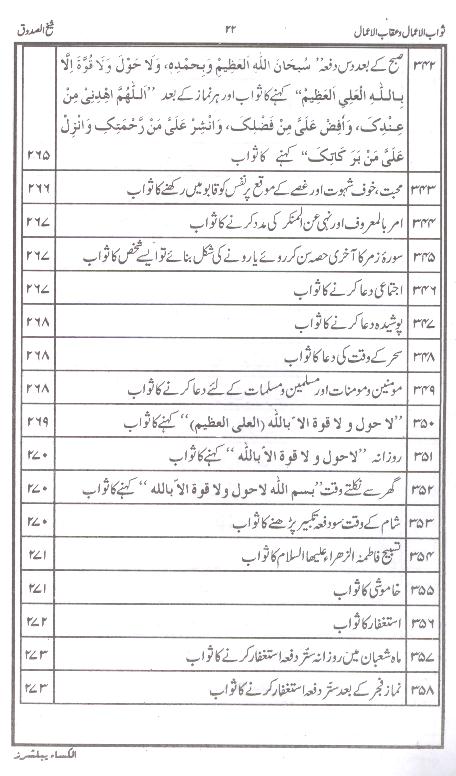 ثواب الاعمال وعقاب الاعمال ۲۲ شیخ الصدوق
۳۴۲ صبح کے بعد دس دفعہ ”سُبحَانَ اللهِ العَظِیمِ وَبِحَمدِہ، وَلَا حَولَ وَلَا قُوَّۃَ اِلَّا
بِاللهِ العَلِیِ العَظِیمِ“ کہنے کا ثواب اور ہر نماز کے بعد ”اَللّٰهُمَّ اهدِنِی مِن
عِندِکَ، وَاَفِض عَلَیَّ مِن فَضلِکَ، وَانشِر عَلَیَّ مِن رَّحمَتِکَ وَانزِل
عَلَیَّ مَن بَرَ کَاتِکَ“ کہنے کا ثواب ۲۶۵
۳۴۳ محبت، خوف شہوت اور غصے کے موقع پر نفس کو قابو میں رکھنے کا ثواب ۲۶۶
۳۴۴ امر بالمعروف اور نہی عن المنکر کی مدد کرنے کا ثواب ۲۶۷
۳۴۵ سورۂ زمر کا آخری حصہ سن کر روئے یا رونے کی شکل بنائے تو ایسے شخص کا ثواب ۲۶۷
۳۴۶ اجتماعی دعا کرنے کا ثواب ۲۶۷
۳۴۷ پوشیدہ دعا کرنے کا ثواب ۲۶۸
۳۴۸ سحر کے وقت کی دعا کا ثواب ۲۶۸
۳۴۹ مومنین و مومنات اور مسلمین و مسلمات کے لئے دعا کرنے کا ثواب ۲۶۸
۳۵۰ ”لا حول و لا قوۃ الا باللہ (العلی العظیم)“ کہنے کا ثواب ۲۶۹
۳۵۱ روزانہ ”لاحول و لا قوۃ الا باللہ“ کہنے کا ثواب ۲۷۰
۳۵۲ گھر سے نکلتے وقت ”بسم اللہ لاحول ولا قوۃ الا باللہ“ کہنے کا ثواب ۲۷۰
۳۵۳ شام کے وقت سو دفعہ تکبیر پڑھنے کا ثواب ۲۷۰
۳۵۴ تسبیح فاطمۃ الزھراء علیھا السلام کا ثواب ۲۷۱
۳۵۵ خاموشی کا ثواب ۲۷۱
۳۵۶ استغفار کا ثواب ۲۷۲
۳۵۷ ماہ شعبان میں روزانہ ستّر دفعہ استغفار کرنے کا ثواب ۲۷۳
۳۵۸ نماز فجر کے بعد ستّر دفعہ استغفار کرنے کا ثواب ۲۷۳
الکساء پبلشرز